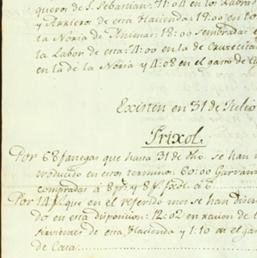 queros de S. Sebastian: 11:04 en los
y Arrieros de esta Hacienda: 19:00 en
la Noria de Animas: 18:00 sembradas
la Labor de esta: 4:00 en la de
en la de la Noria y 4:08 en el gasto de
Existen en 31 de Julio
Frixol.
Por 68 fanegas que hasta 31 de se han
producido en estos terminos: 60:00
compradas á 8 p.s y 8
Por 14 f. que en el referido mes se han
do en esta disposicion: 12:02 en racion de
Sirvientes de esta Hacienda y 1:10 en el
de Casa